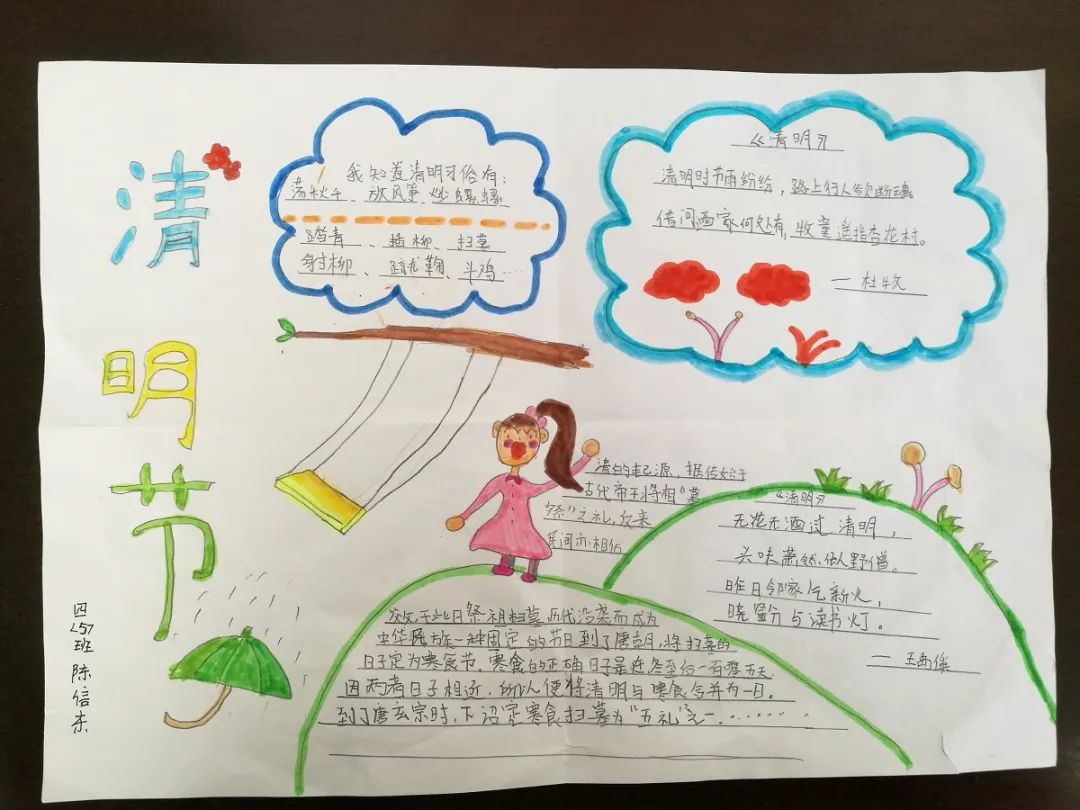 清
明
节
四〈5〉班
陈信
我知道清明习俗有:
荡秋千、放风筝、炒螺蛳
踏青、插柳、扫墓
射柳、蹴鞠、斗鸡……
《清明》
清明时节雨纷纷,路上行人欲断魂
借问酒家何处有,牧童遥指杏花村。
—杜牧
清的起源,据传始于
古代帝王将相"墓
祭"之礼,后来
民间亦相仿
效,于此日祭祖扫墓历代沿袭而成为
中华民族一种固定的节日到了唐朝,将扫墓的
日子定为寒食节,寒食的正确日子是在冬至后一百零五天
因两者日子相近,所以人便将清明与寒食合并为一日。
到了唐玄宗时,下诏定寒食扫墓为"五礼"之一.……
《清明》
无花无酒过清明,
兴味萧然似野僧。
昨日邻家乞新火,
晓窗分与读书灯。
—王禹偁